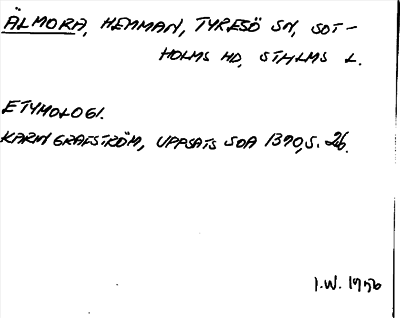 ÄLMORA, HEMMAN, TYRESÖ SN, SOT-
HOLMS HD, STHLMS L.
ETYMOLOGI.
KARIN GRAFSTRÖM, UPPSATS SOA 1390, S. 26.
I.W. 1956